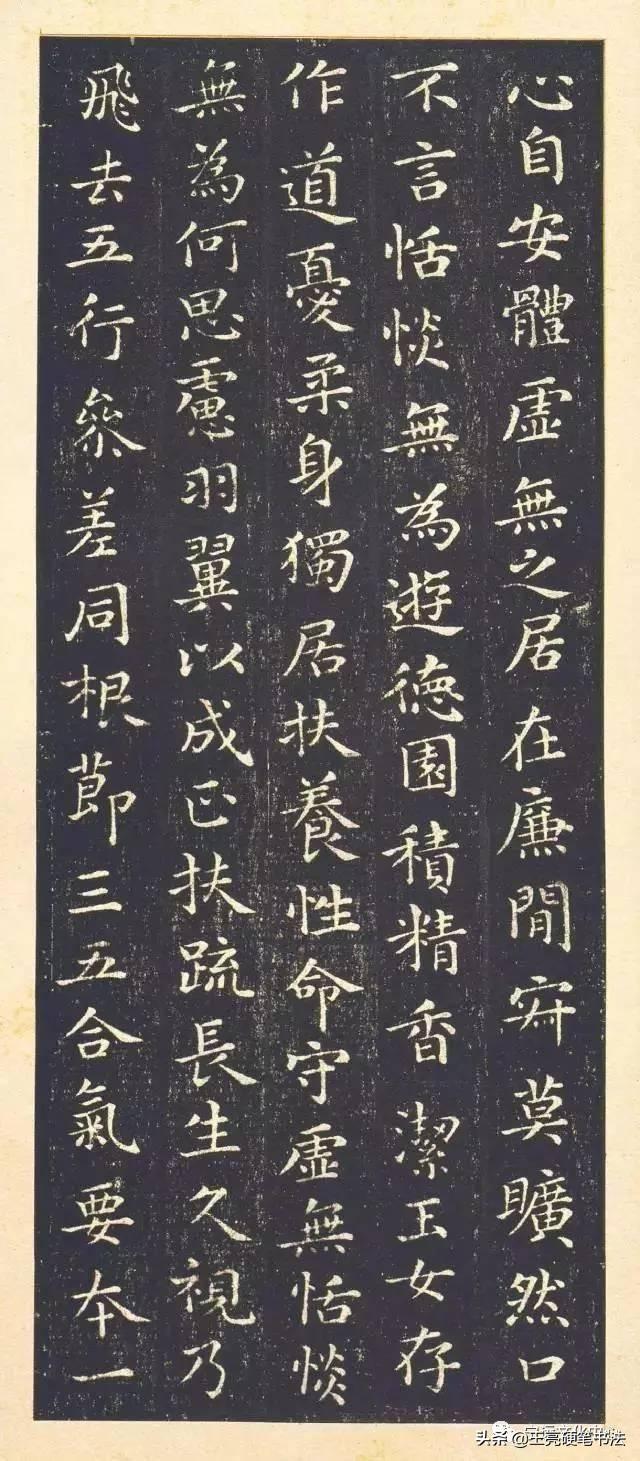 心自安體虛無之居在廉間㝕莫曠然口
不言恬惔無為遊德園積精香潔玉女存
作道憂柔身獨居扶養性命守虛無恬惔
無為何思慮羽翼以成正扶疏長生久視乃
飛去五行參差同根節三五合氣要本一
头条@王亮硬笔书法